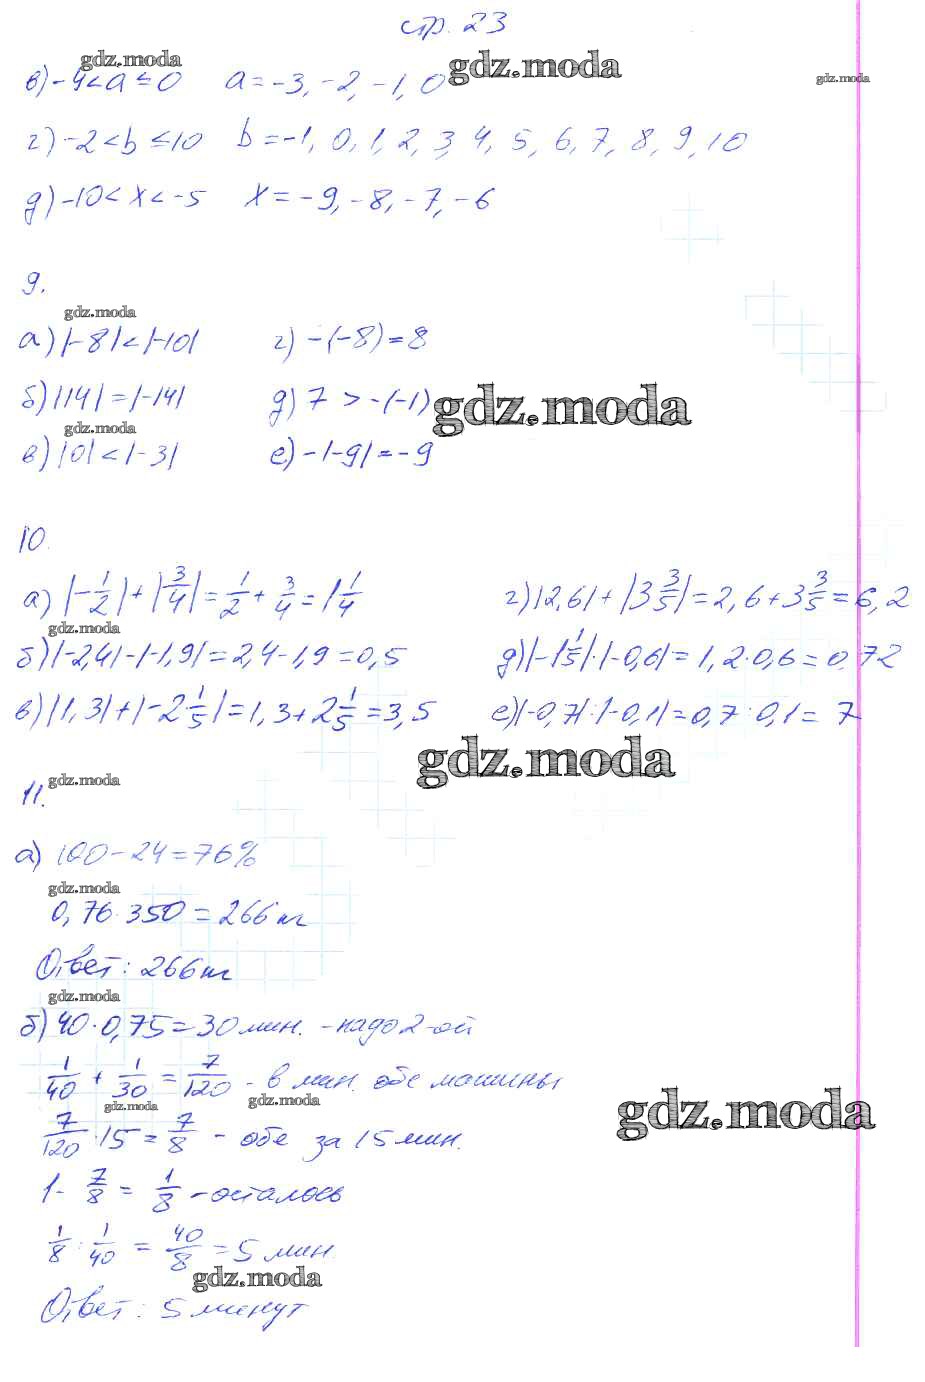 стр. 23
gdz.moda
gdz.moda
gdz.moda
в) -4 < a ≤ 0 a = -3, -2, -1, 0
г) -2 < b ≤ 10 b = -1, 0, 1, 2, 3, 4, 5, 6, 7, 8, 9, 10
д) -10 < x < -5 x = -9, -8, -7, -6
9.
gdz.moda
а) |-8| < |-10| г) -(-8) = 8
б) |14| = |-14| д) 7 > -(-1)
gdz.moda
gdz.moda
в) |0| < |-3| е) -|-9| = -9
10.
а) |-1/2| + |3/4| = 1/2 + 3/4 = 1 1/4 г) |2,6| + |3 3/5| = 2,6 + 3 3/5 = 6,2
gdz.moda
б) |-2,4| - |-1,9| = 2,4 - 1,9 = 0,5 д) |-1 1/5| · |-0,6| = 1,2 · 0,6 = 0,72
в) |1,3| + |-2 1/5| = 1,3 + 2 1/5 = 3,5 е) |-0,7| : |-0,1| = 0,7 : 0,1 = 7
gdz.moda
11.
gdz.moda
а) 100 - 24 = 76%
gdz.moda
0,76 · 350 = 266 кг
Ответ: 266 кг
gdz.moda
б) 40 · 0,75 = 30 мин. - надо 2-ой
1/40 + 1/30 = 7/120 - в мин. обе машины
gdz.moda
gdz.moda
gdz.moda
7/120 · 15 = 7/8 - обе за 15 мин.
1 - 7/8 = 1/8 - осталось
1/8 : 1/40 = 40/8 = 5 мин.
gdz.moda
Ответ: 5 минут